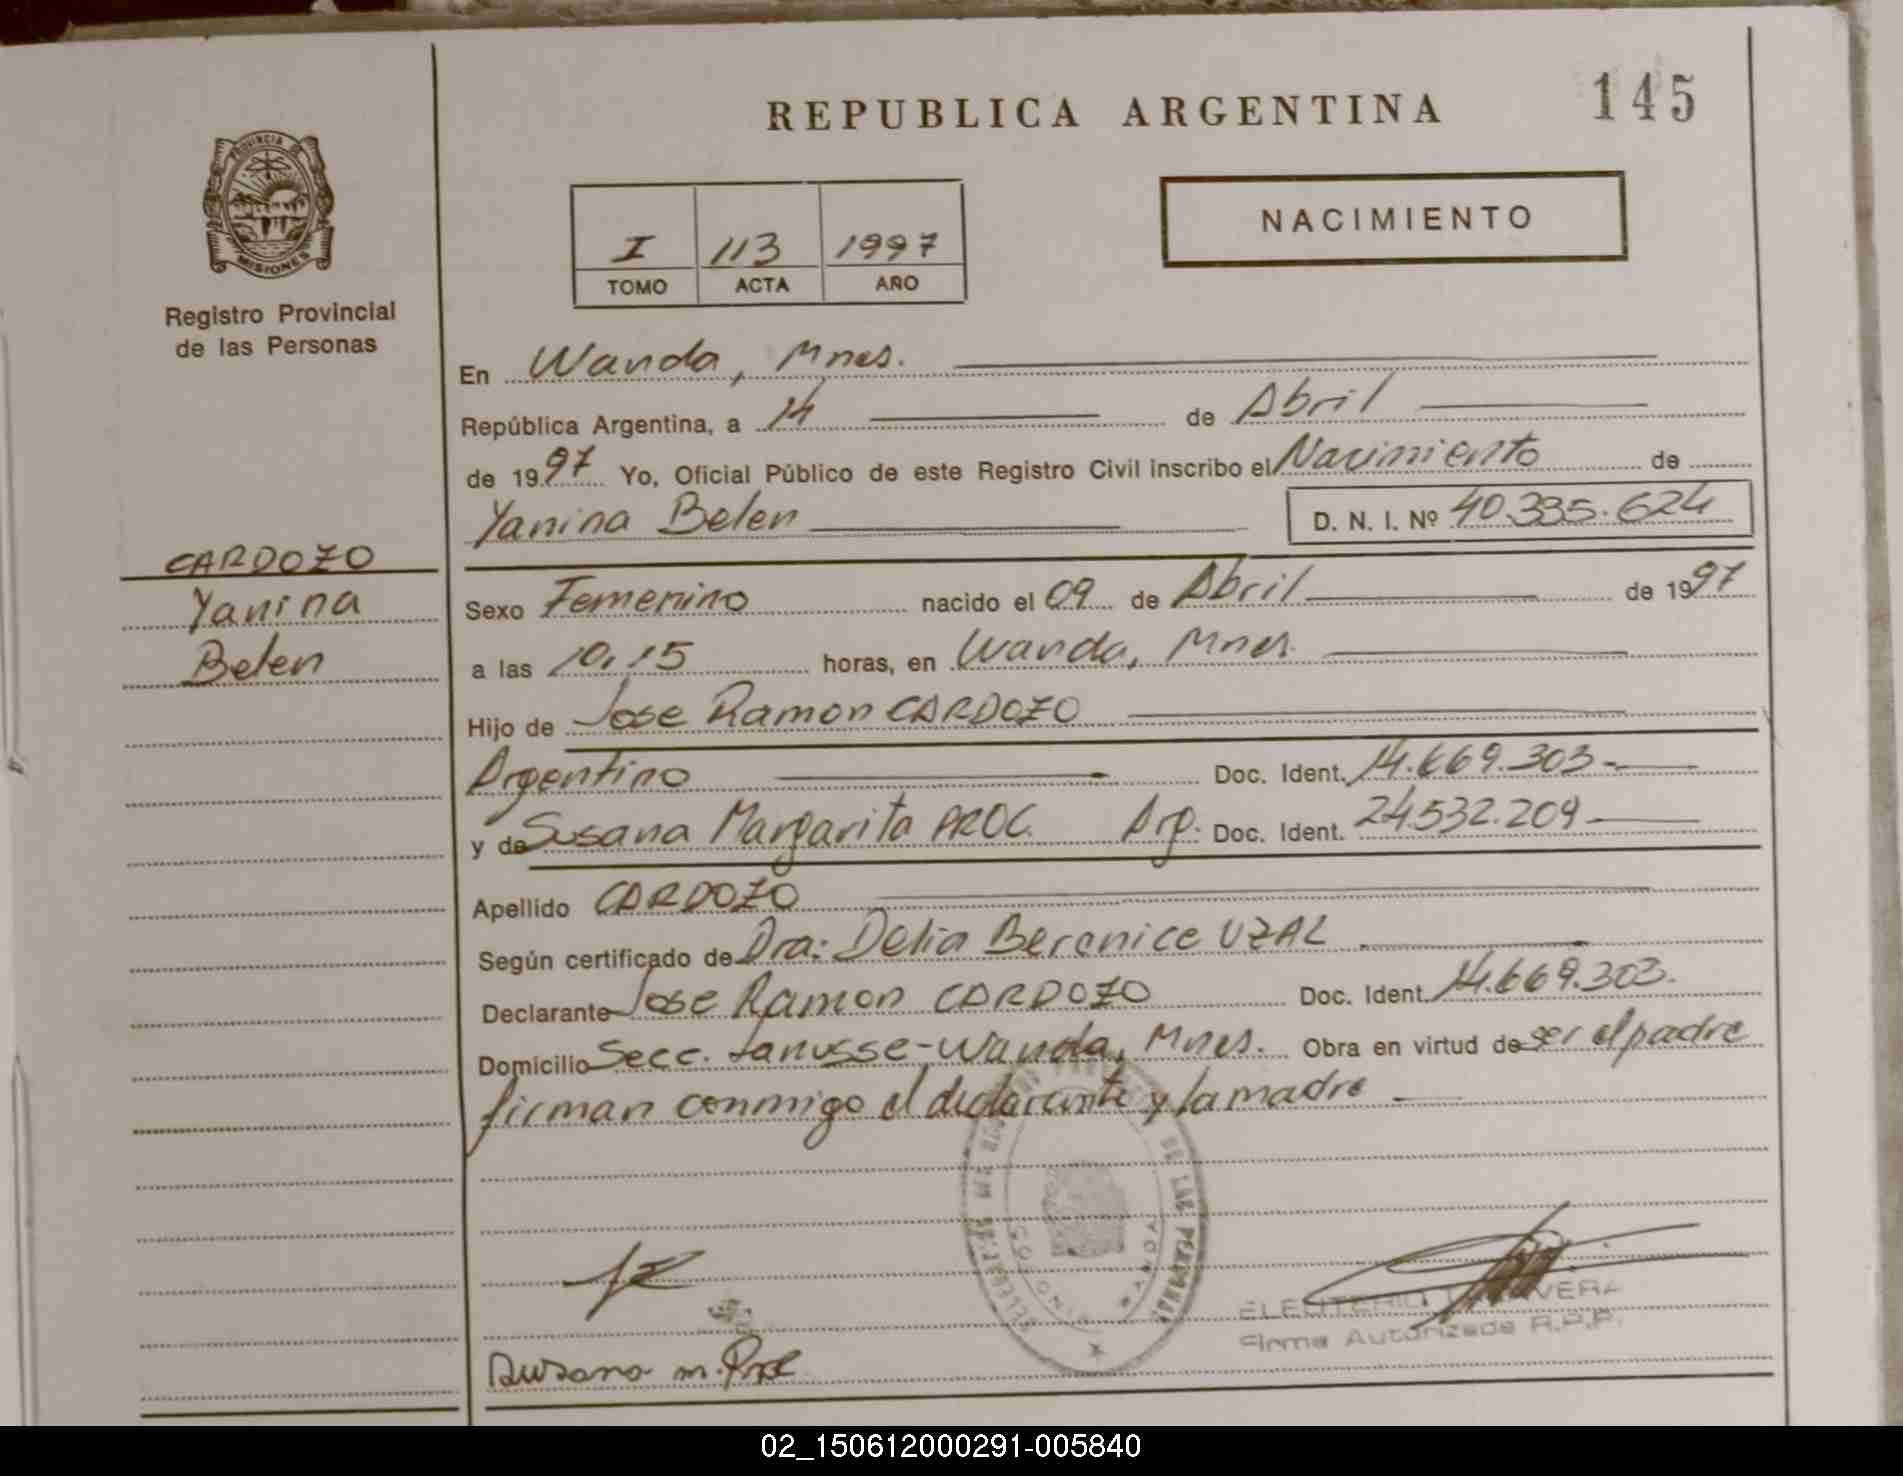 REPUBLICA ARGENTINA
145
PROVINCIA DE
MISIONES
Registro Provincial
de las Personas
I 113 1997
TOMO ACTA AÑO
NACIMIENTO
En Wanda, Mnes.
República Argentina, a 14 de Abril
de 1997 Yo, Oficial Público de este Registro Civil inscribo el Nacimiento de
Yanina Belen D. N. I. Nº 40.335.624
CARDOZO
Yanina
Belen
Sexo Femenino nacido el 09 de Abril de 1997
a las 10,15 horas, en Wanda, Mnes.
Hijo de Jose Ramon CARDOZO
Argentino Doc. Ident. 14.669.303-
y de Susana Margarita PROC. Arg. Doc. Ident. 24.532.209-
Apellido CARDOZO
Según certificado de Dra: Delia Berenice UZAL
Declarante Jose Ramon CARDOZO Doc. Ident. 14.669.303.
Domicilio Secc. Lanusse-Wanda, Mnes. Obra en virtud de ser el padre
firman conmigo el declarante y la madre
DE LAS PERSONAS
WANDA
ELEUTERIO VERA
Firma Autorizada R.P.P.
Susana m. Proc
02_150612000291-005840